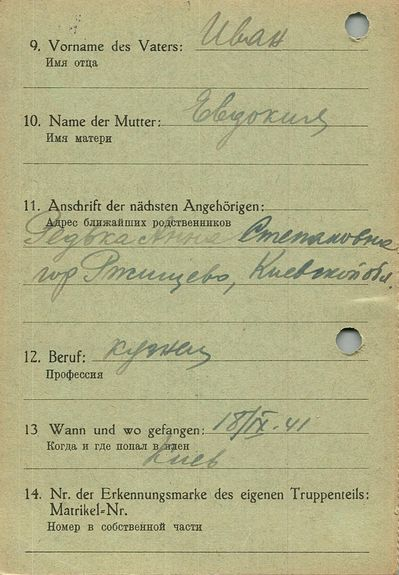 9. Vorname des Vaters: Иван
Имя отца
10. Name der Mutter: Евдокия
Имя матери
11. Anschrift der nächsten Angehörigen:
Адрес ближайших родственников
Редька Анна Степановна
гор Ржищево, Киевской обл.
12. Beruf: кузнец
Профессия
13 Wann und wo gefangen: 18/IX-41
Когда и где попал в плен
Киев
14. Nr. der Erkennungsmarke des eigenen Truppenteils:
Matrikel-Nr.
Номер в собственной части